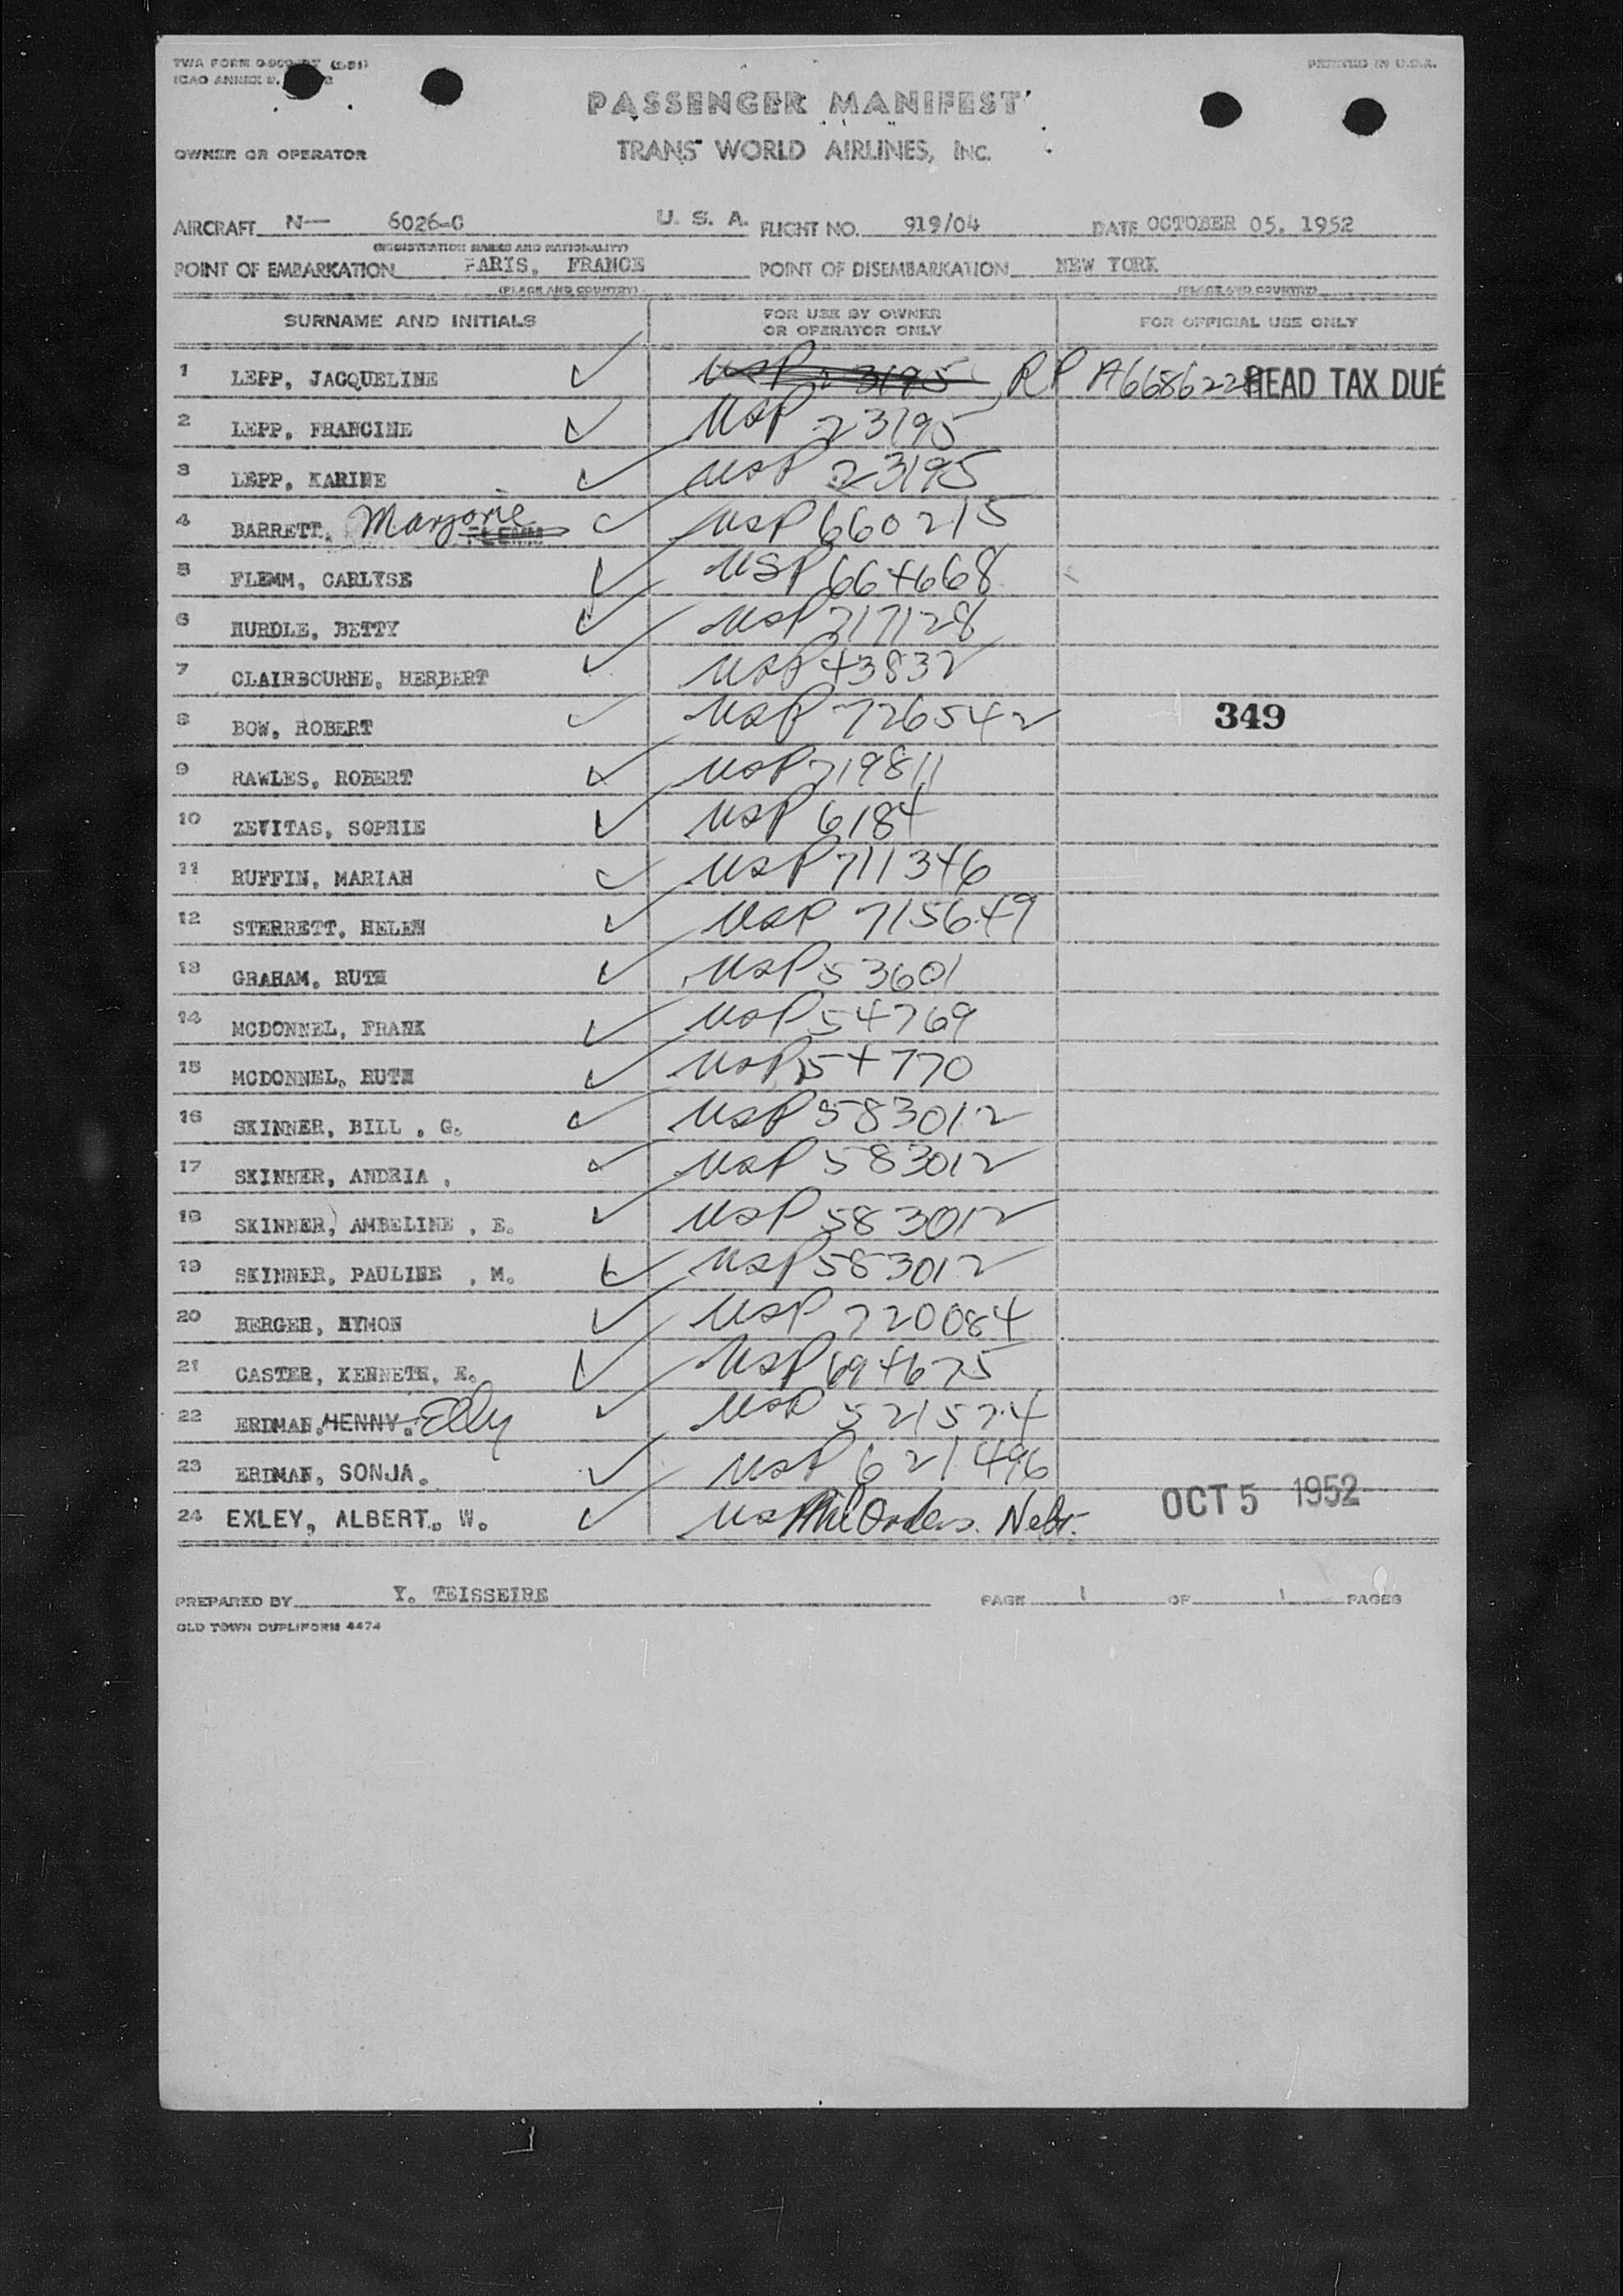 TWA FORM
ICAO ANNEX
PRINTED IN U.S.A.
PASSENGER MANIFEST
TRANS WORLD AIRLINES, INC.
OWNER OR OPERATOR
AIRCRAFT N— 6026-C U. S. A. FLIGHT NO. 919/04 DATE OCTOBER 05, 1952
(REGISTRATION MARKS AND NATIONALITY)
POINT OF EMBARKATION PARIS, FRANCE POINT OF DISEMBARKATION NEW YORK
(PLACE AND COUNTRY) (PLACE AND COUNTRY)
SURNAME AND INITIALS FOR USE BY OWNER OR OPERATOR ONLY FOR OFFICIAL USE ONLY
1 LEPP, JACQUELINE USP 23195 RP HEAD TAX DUE
2 LEPP, FRANCINE USP 23195
3 LEPP, KARINE USP 23195
4 BARRETT, Marjorie USP 660215
5 FLEMM, CARLYSE USP 664668
6 HURDLE, BETTY USP 717128
7 CLAIRBOURNE, HERBERT USP 43832
8 BOW, ROBERT USP 726542 349
9 RAWLES, ROBERT USP 719811
10 ZEVITAS, SOPHIE USP 6184
11 RUFFIN, MARIAH USP 711346
12 STERRETT, HELEN USP 715649
13 GRAHAM, RUTH USP 53601
14 MCDONNEL, FRANK USP 54769
15 MCDONNEL, RUTH USP 54770
16 SKINNER, BILL , G. USP 583012
17 SKINNER, ANDRIA , USP 583012
18 SKINNER, AMBELINE , E. USP 583012
19 SKINNER, PAULINE , M. USP 583012
20 BERGER, HYMON USP 720084
21 CASTER, KENNETH, E. USP 694675
22 ERDMAN, HENNY. Elly USP 521574
23 ERDMAN, SONJA. USP 621496
24 EXLEY, ALBERT., W. US Mil Orders. Nebr. OCT 5 1952
PREPARED BY Y. TEISSEIRE PAGE 1 OF 1 PAGES
OLD TOWN DUPLIFORM 4474